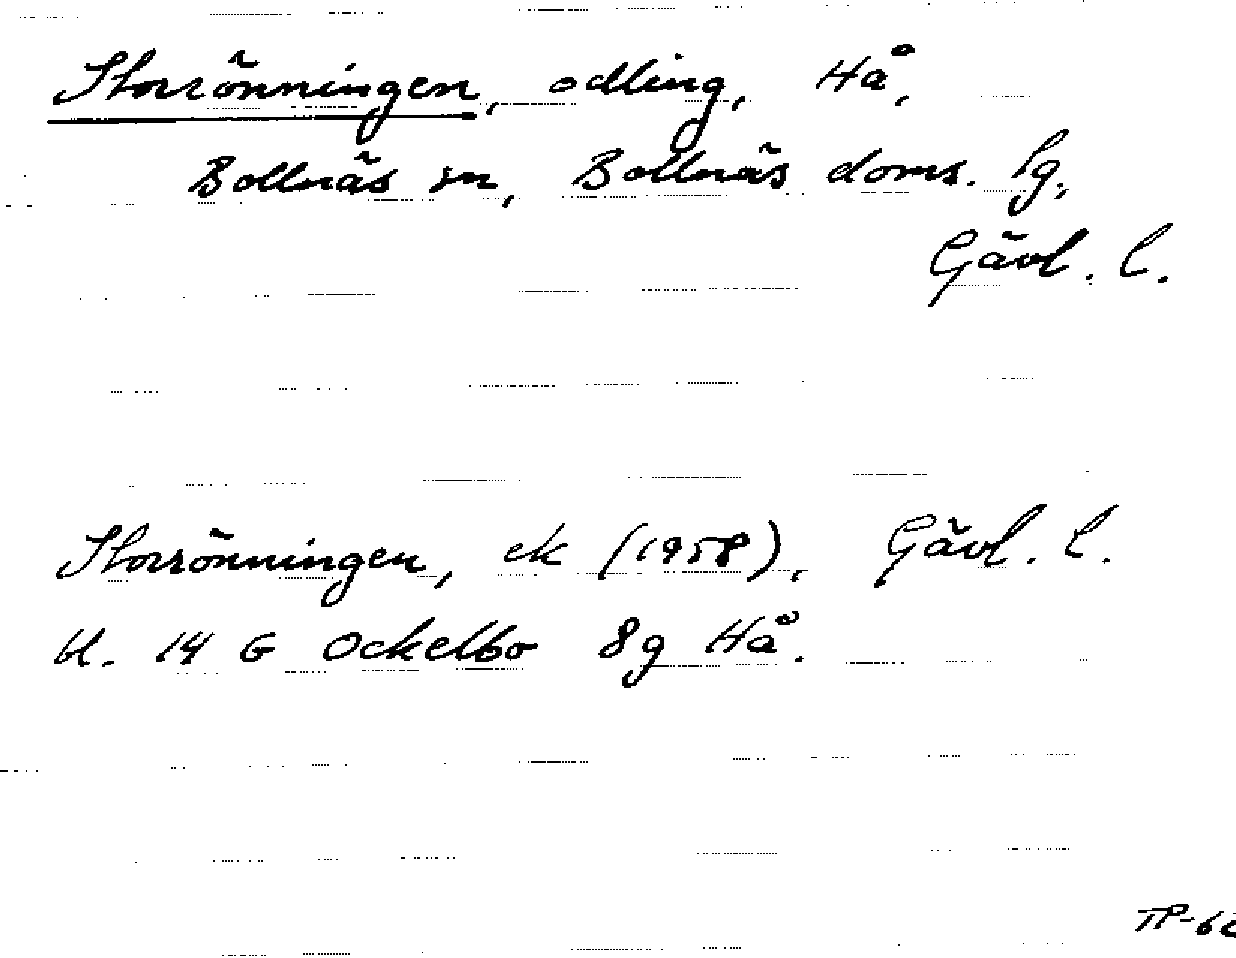 Storrönningen, odling, Hå,
Bollnäs sn, Bollnäs doms. lg,
Gävl. l.
Storrönningen, ek (1958), Gävl. l.
Kl. 14 G Ockelbo 8g Hå.